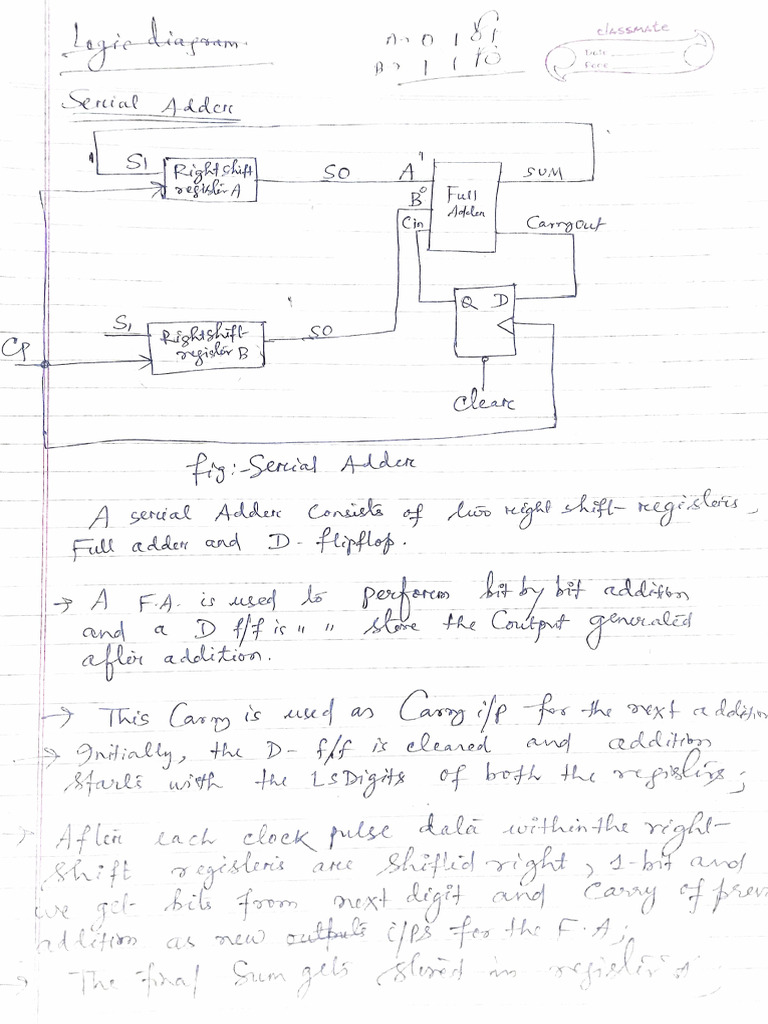 Logic diagram.
A → 0 1 0 1
B → 1 1 1 0
classmate
Date
Page
Serial Adder
SI
Right shift
register A
SO
A 1
B 0
Cin
Full
Adder
SUM
Carry out
SI
Right shift
register B
SO
Q D
CP
Clear
fig:- Serial Adder
A serial Adder consists of two right shift-registers,
Full adder and D-flipflop.
→ A F.A. is used to perform bit by bit addition
and a D f/f is " " store the Coutput generated
after addition.
→ This Carry is used as Carry i/p for the next addition
→ Initially, the D-f/f is cleared and addition
starts with the LSDigits of both the registers;
→ After each clock pulse data within the right-
shift registers are shifted right, 1-bit and
we get bits from next digit and carry of prev
addition as new outputs i/ps for the F.A;
→ The final Sum gets stored in register A;